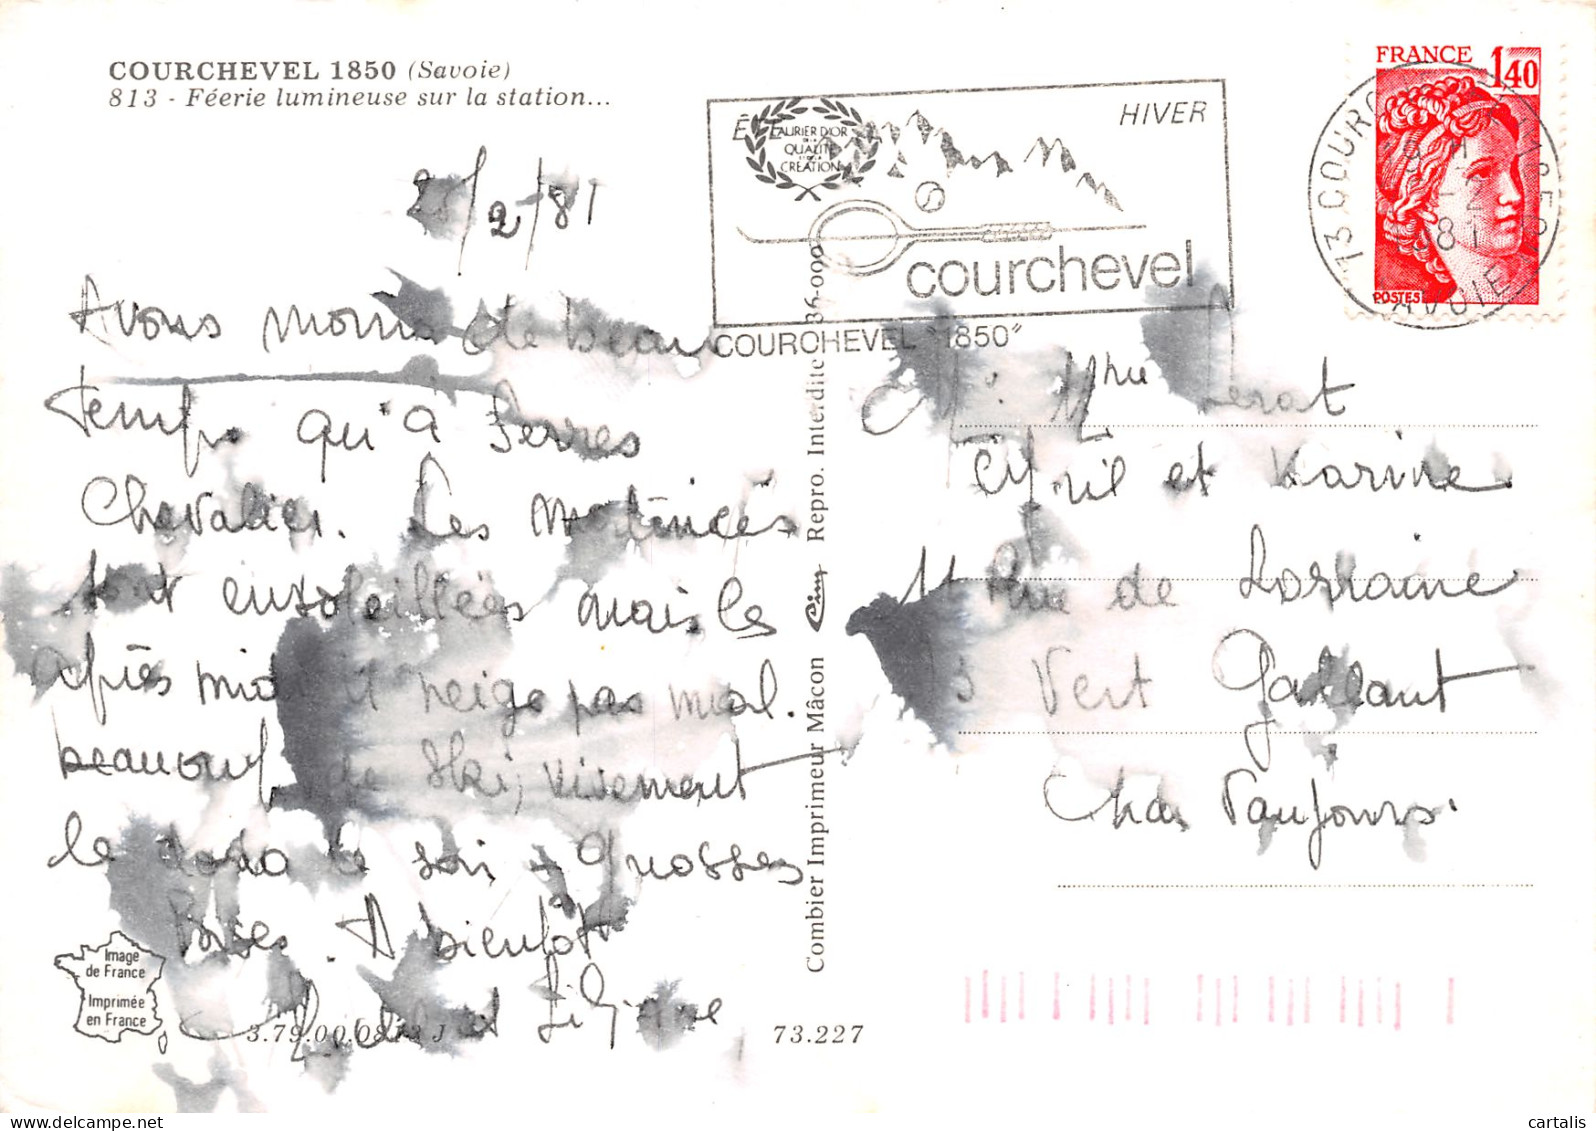 COURCHEVEL 1850 (Savoie)
813 - Féerie lumineuse sur la station...
/2/81
Avons moins de beau
temps qu'à Serres
Chevalier. Les matinées
sont ensoleillées mais les
après midi il neige pas mal.
beaucoup de ski, vivement
le dodo ce soir grosses
Bises. A bientôt
et
Image
de France
Imprimée
en France
3.79.00.0813 J
73.227
Combier Imprimeur Mâcon Cim Repro. Interdite 36-000
ÉTÉ
LAURIER D'OR
DE LA
QUALITÉ
ET DE LA
CRÉATION
HIVER
courchevel
COURCHEVEL "1850"
FRANCE
1,40
POSTES
73 COURCHEVEL
SAVOIE
M. Mme
Cyril et Karine
Rue de Lorraine
Vert Gallant
Vaujours.
cartalis